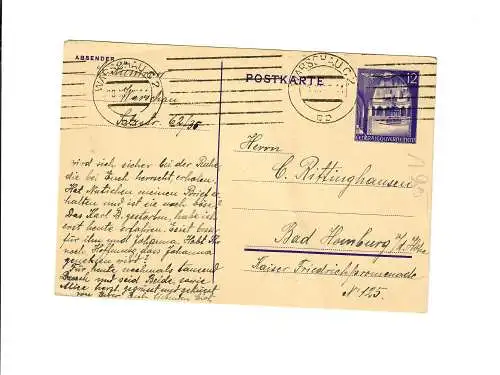 ABSENDER
WARSCHAU C 2
Warschau
62/35
POSTKARTE
WARSCHAU C 2
12
GENERALGOUVERNEMENT
Herrn
C. Rittinghausen
Bad Homburg v/d. Höhe
Kaiser Friedrichpromenade
No 125.
wird sich sicher bei der Ruhe
die bei Euch herrscht erholen.
Hat meinen Brief er-
halten und ist sie noch böse?
Das Karl B. gestorben, habe ich
erst heute erfahren.
für ihn und Johanna. Habt Ihr
noch Hoffnung dass Johanna
wird?
Für heute nochmals tausend
und seid Beide sowie
Alice herzl. gegrüsst und geküsst
von